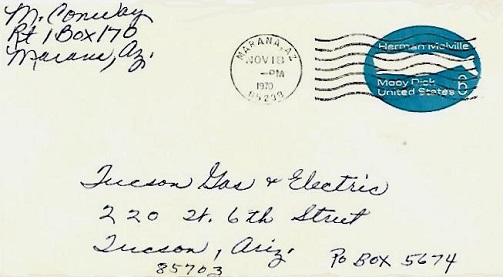 M. Conway
Rt 1 Box 170
Marana, Az.
MARANA, AZ
NOV 18
-PM
1970
85238
Herman Melville
Moby Dick
United States 6c
Tucson Gas & Electric
220 W. 6th Street
Tucson, Ariz.
85703
Po Box 5674